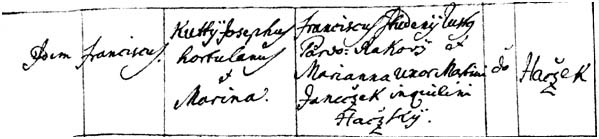 Idem
Franciscus.
Kuttÿ Josephus
hortulanus
et
Marina.
Franciscus
Parvo: Rakovÿ et
Marianna uxor Martini
Janczek inquilini
Haczkÿ.
do
Haczek